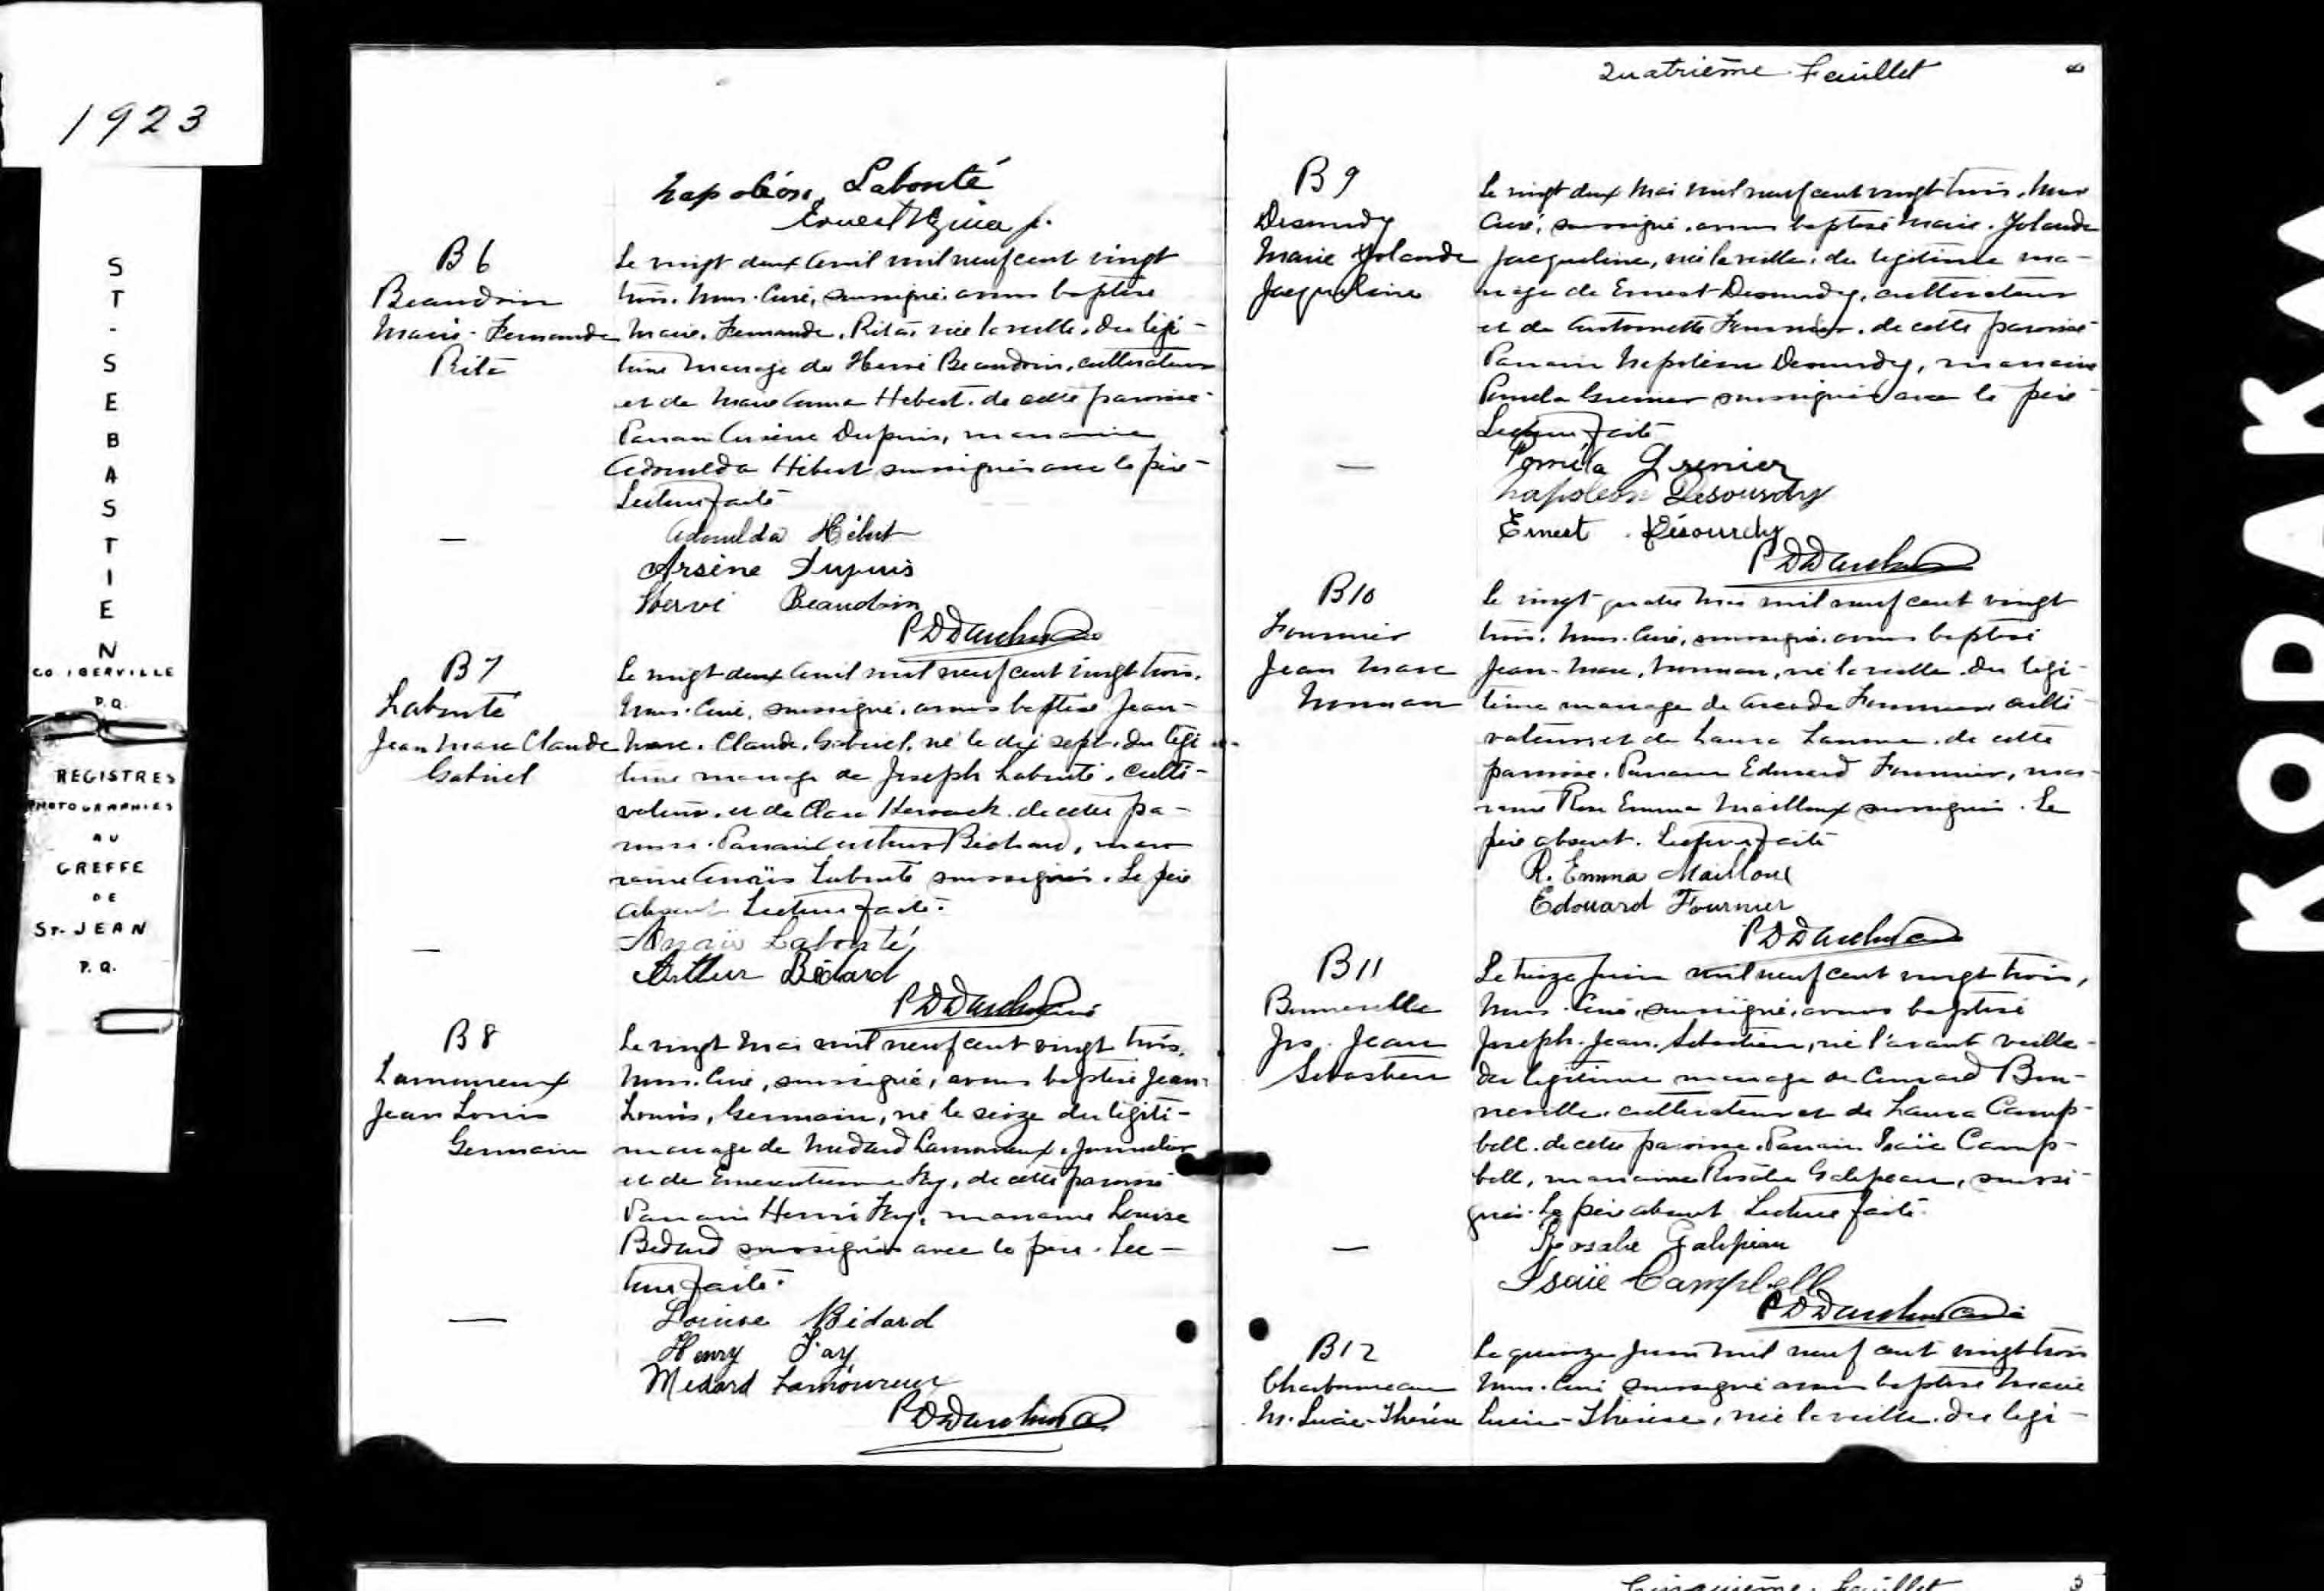 1923
ST-SEBASTIEN
CO. IBERVILLE
P.Q.
REGISTRES
PHOTOGRAPHIES
AU
GREFFE
DE
ST-JEAN
P.Q.
Napoléon Labonté
Ernest
B6
Beaudoin
Marie-Fernande
Rita
Le vingt deux Avril mil neuf cent vingt
trois. Nous. Curé, soussigné. avons baptisé
Marie. Fernande. Rita née la veille. du légi-
time mariage de Hervé Beaudoin, cultivateur
et de Marie Anna Hébert. de cette paroisse-
Parrain Arsène Dupuis, marraine
Adouilda Hébert soussignés avec le père-
Lecture faite
Adouilda Hébert
Arsène Dupuis
Hervé Beaudoin
B7
Labonté
Jean Marc Claude
Gabriel
Le vingt deux Avril mil neuf cent vingt trois.
Nous. Curé, soussigné. avons baptisé Jean-
Marc. Claude. Gabriel, né le dix sept. du légi-
time mariage de Joseph Labonté. culti-
vateur. et de Clara de cette pa-
roisse. Parrain Arthur mar-
raine Anaïs Labonté soussignés. Le père
absent Lecture faite.
Anais Labonté
Arthur Bédard
B8
Lamoureux
Jean Louis
Germain
Le vingt Mai mil neuf cent vingt trois.
Nous. Curé, soussigné, avons baptisé Jean-
Louis, Germain, né le seize du légiti-
mariage de Médard Lamoureux, journalier
et de Fay, de cette paroisse
Parrain Henri Fay, marraine Louise
Bédard soussignés avec le père. Lec-
ture faite.
Louise Bédard
Henry Fay
Médard Lamoureux
Quatrième Feuillet
B9
Desourdy
Marie Yolande
Jacqueline
Le vingt deux Mai mil neuf cent vingt trois. Nous
Curé, soussigné. avons baptisé Marie. Yolande
Jacqueline, née la veille. du légitime ma-
riage de Ernest Desourdy, cultivateur
et de Antoinette Fournier. de cette paroisse
Parrain Napoléon Desourdy, marraine
Pomela Grenier soussignés avec le père-
Lecture faite
Poméla Grenier
Napoléon Desourdy
Ernest Désourdy
B10
Fournier
Jean Marc
Norman
Le vingt quatre Mai mil neuf cent vingt
trois. Nous. Curé, soussigné. avons baptisé
Jean-Marc, Norman, né la veille. du légi-
time mariage de Arcade Fournier culti-
vateur et de Laura de cette
paroisse. Parrain Edouard Fournier, mar-
raine Rose Emma Mailloux soussignés. Le
père absent. Lecture faite
R. Emma Mailloux
Edouard Fournier
B11
Bonneville
Jos. Jean
Sebastien
Le treize Juin mil neuf cent vingt trois,
Nous. Curé, soussigné, avons baptisé
Joseph. Jean. Sébastien, né l'avant veille-
du légitime mariage de Conrad Bon-
neville. cultivateur et de Laura Camp-
bell. de cette paroisse. Parrain Isaïe Camp-
bell, marraine Rosalie Galipeau, soussi-
gnés. Le père absent Lecture faite.
Rosalie Galipeau
Isaïe Campbell
B12
Charbonneau
M. Lucie-Thérèse
Le quinze Juin mil neuf cent vingt trois
Nous. Curé soussigné avons baptisé Marie
Lucie-Thérèse, née la veille. du légi-
Cinquième. feuillet
KODAK W